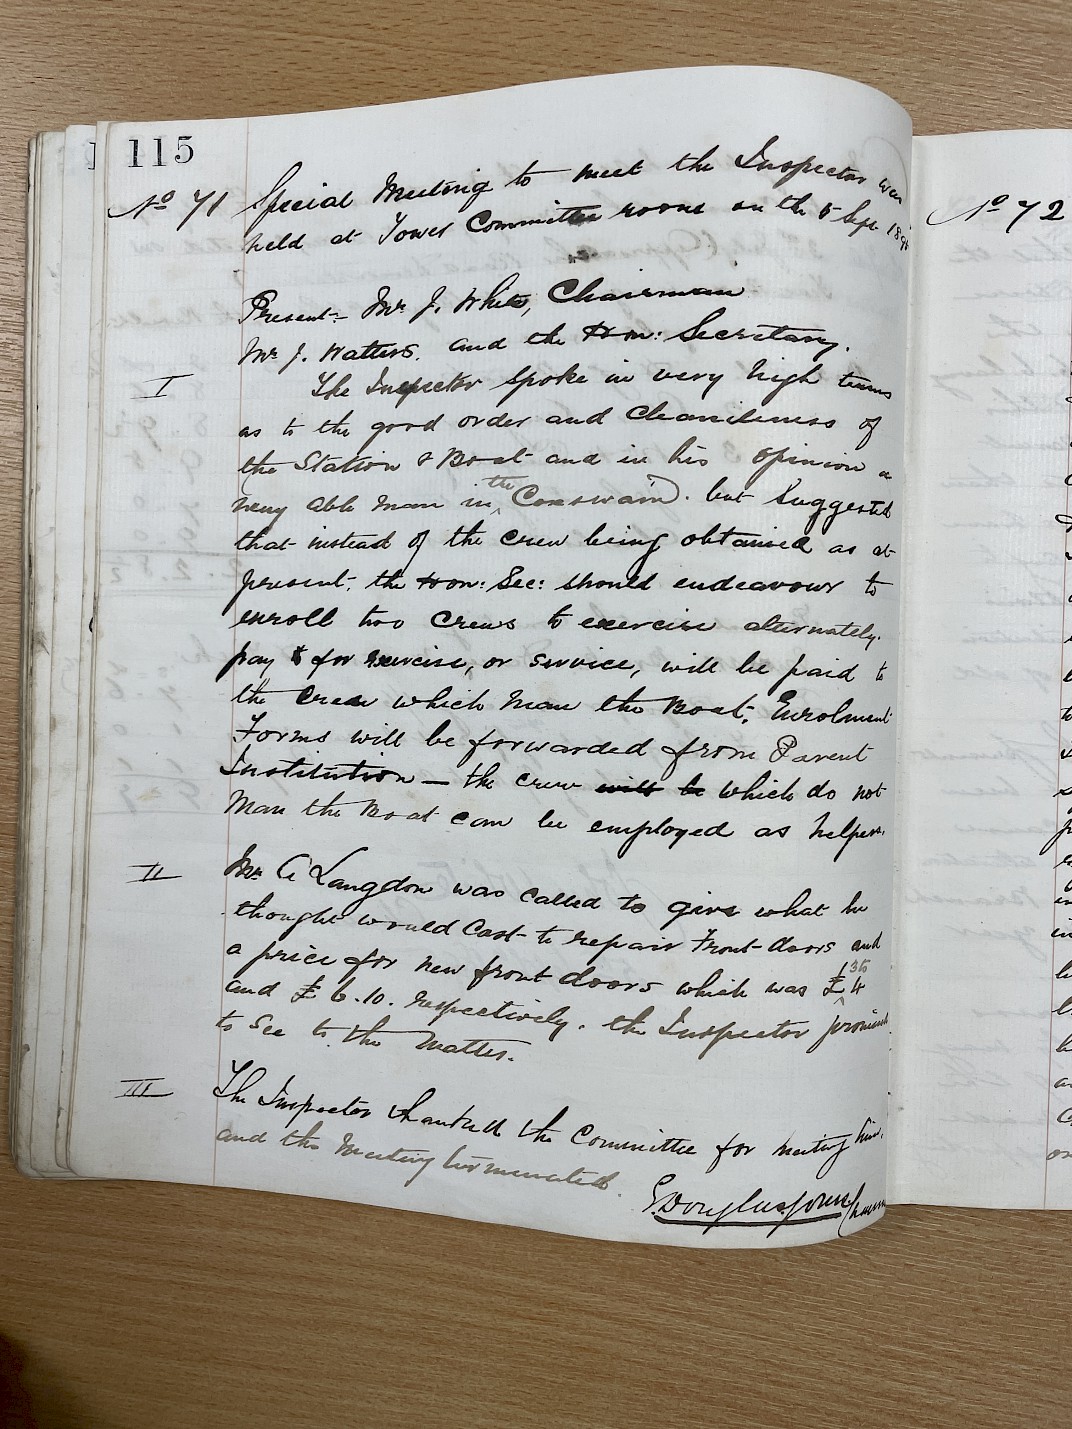 115
No 71 Special Meeting to meet the Inspector was
held at Tower Committee rooms on the 5 Sept. 189
Present:- Mr J. White, Chairman
Mr J. Watters. and the Hon: Secretary.
I The Inspector spoke in very high terms
as to the good order and cleanliness of
the Station & Boat and in his opinion a
very able man in the Coxswain. but suggested
that instead of the crew being obtained as at
present, the Hon: Sec: should endeavour to
enroll two Crews to exercise alternately.
pay for exercise, or service, will be paid to
the crew which man the Boat, Enrolment
Forms will be forwarded from Parent
Institution — the crew will be which do not
Man the Boat can be employed as helpers.
II Mr A Langdon was called to give what he
thought would Cost to repair Front doors and
a price for new front doors which was £4
and £6.10. respectively. the Inspector promised
to see to the matter.
III The Inspector thanked the Committee for meeting him.
and the Meeting terminated.
No 72